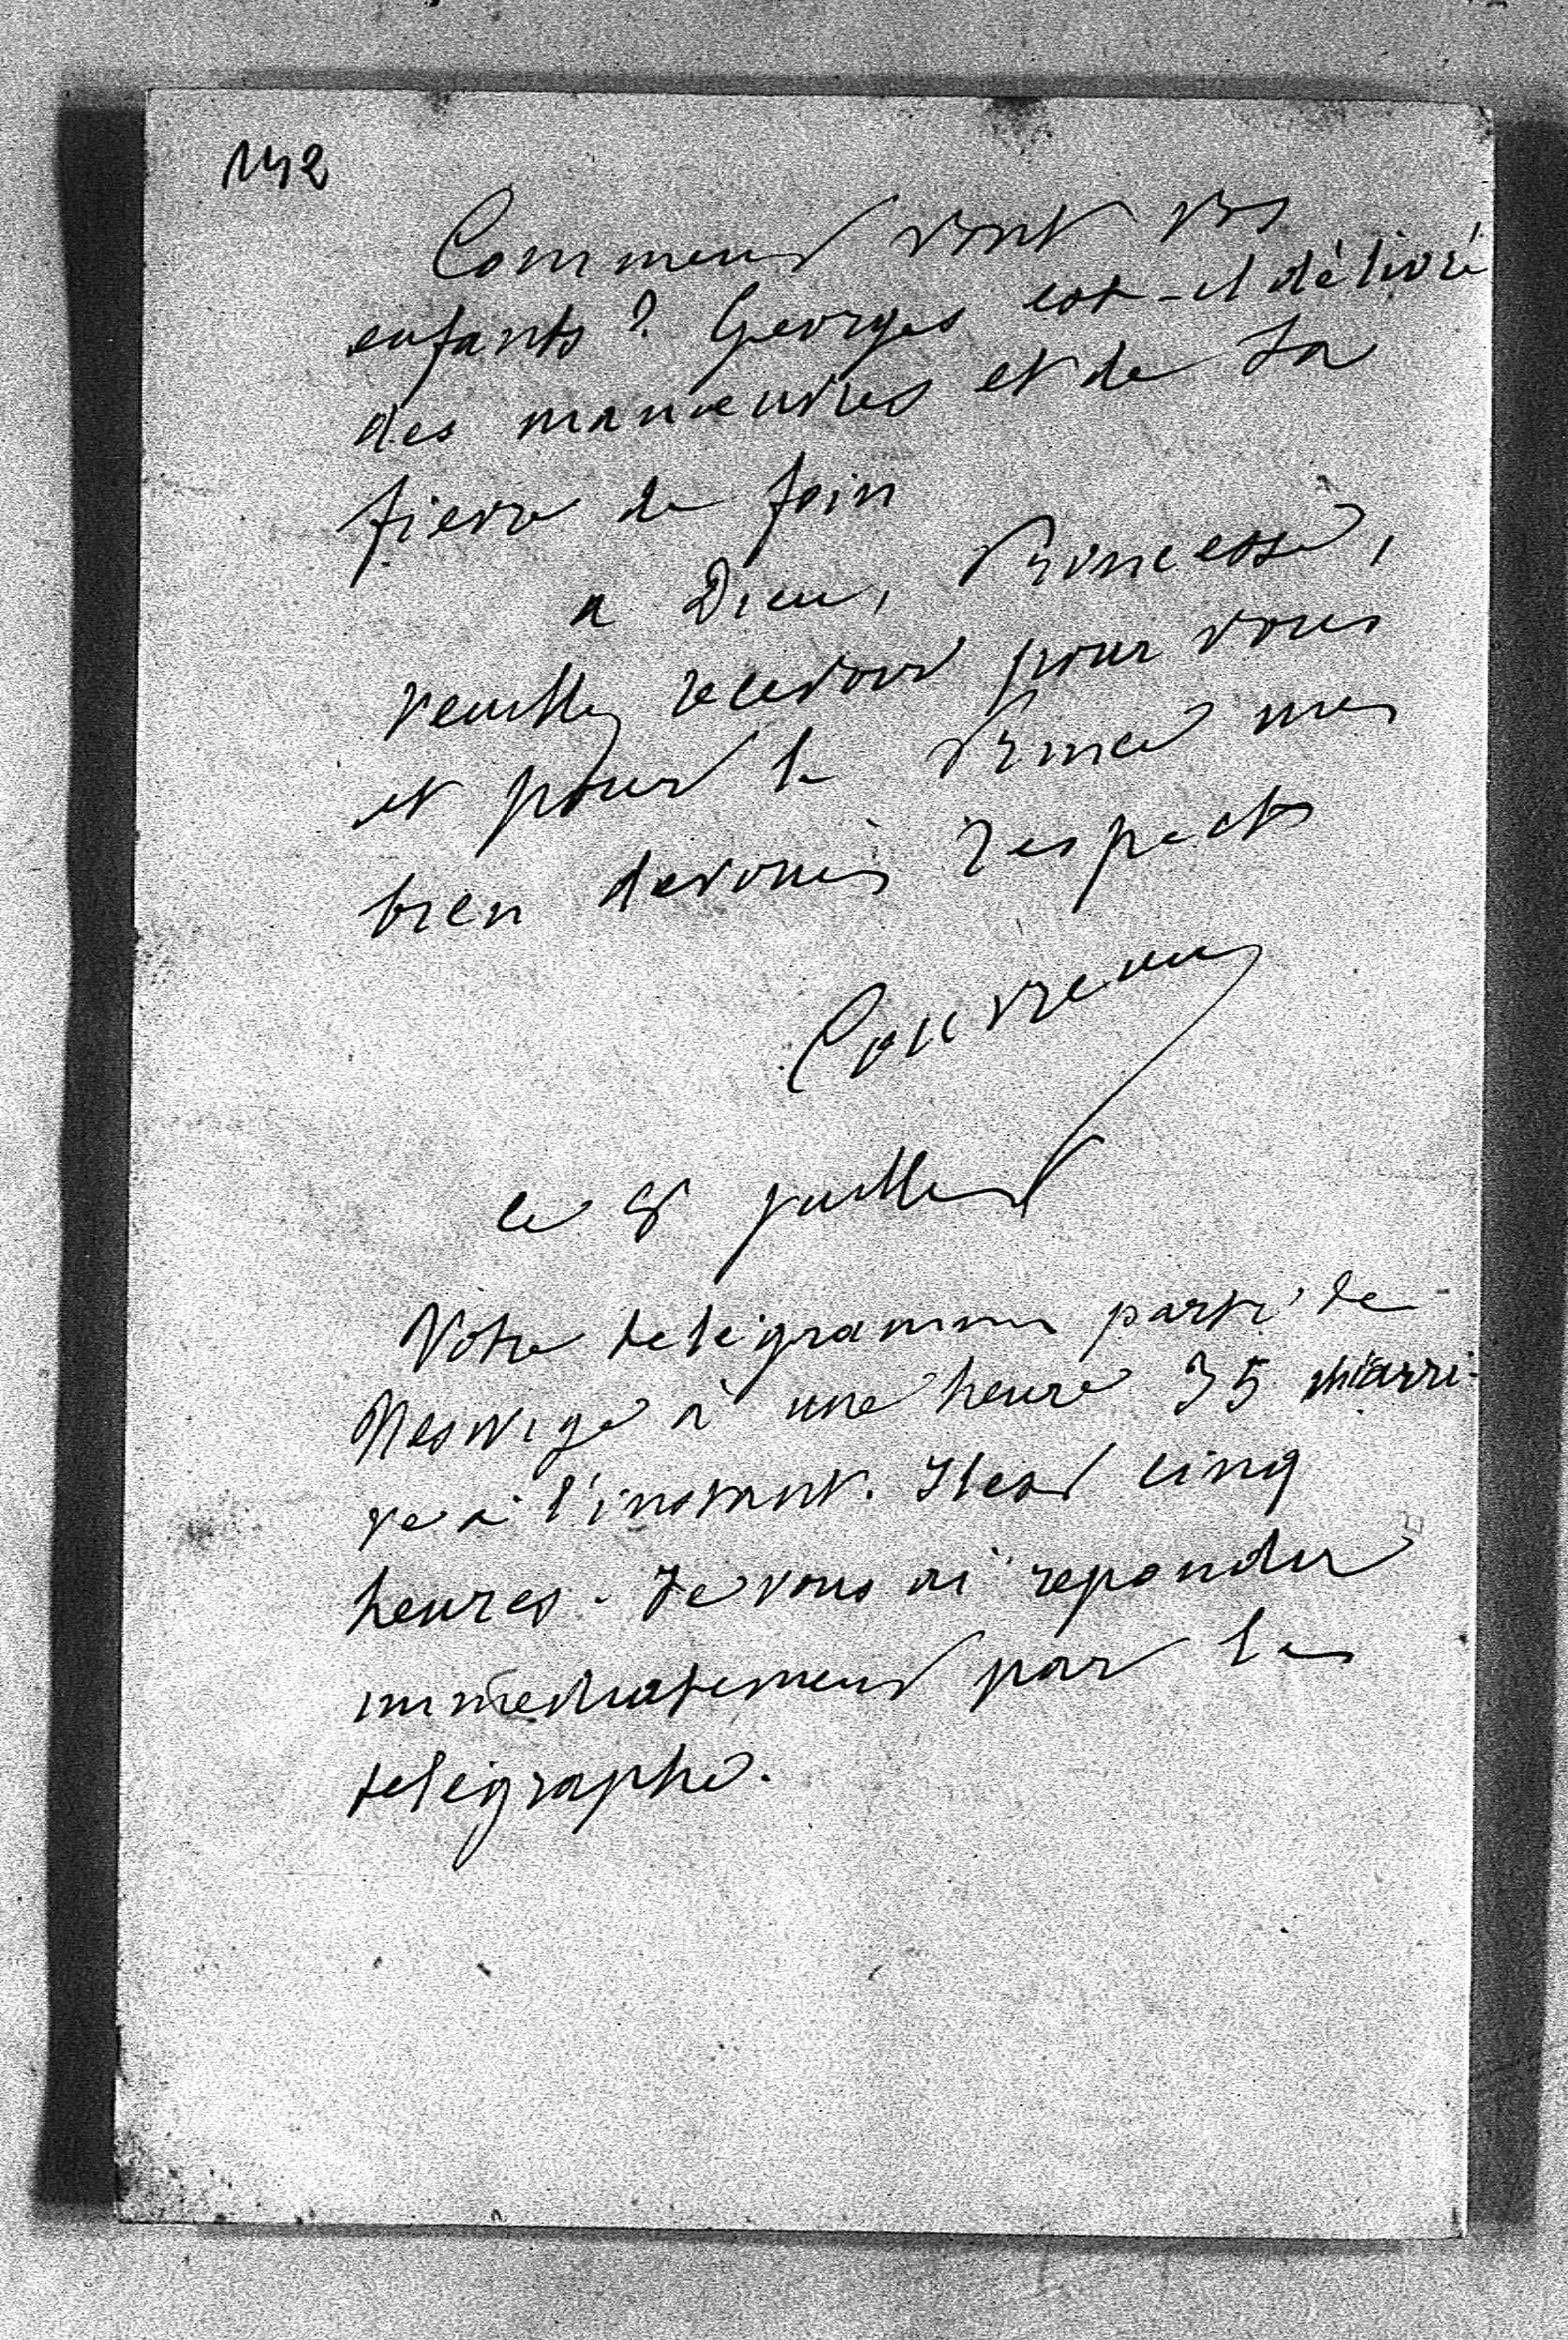 142
Comment vont vos
enfants? Georges est-il délivré
des manœuvres et de sa
fievre de foin
a Dieu, Princesse,
veuillez recevoir pour vous
et pour le Prince mes
bien devoués respects
Couvreux
le 8 juillet
Votre telégramme parti de
Neswige à une heure 35 m'arri-
ve à l'instant. Il est cinq
heures. Je vous ai repondu
immediatement par le
telégraphe.